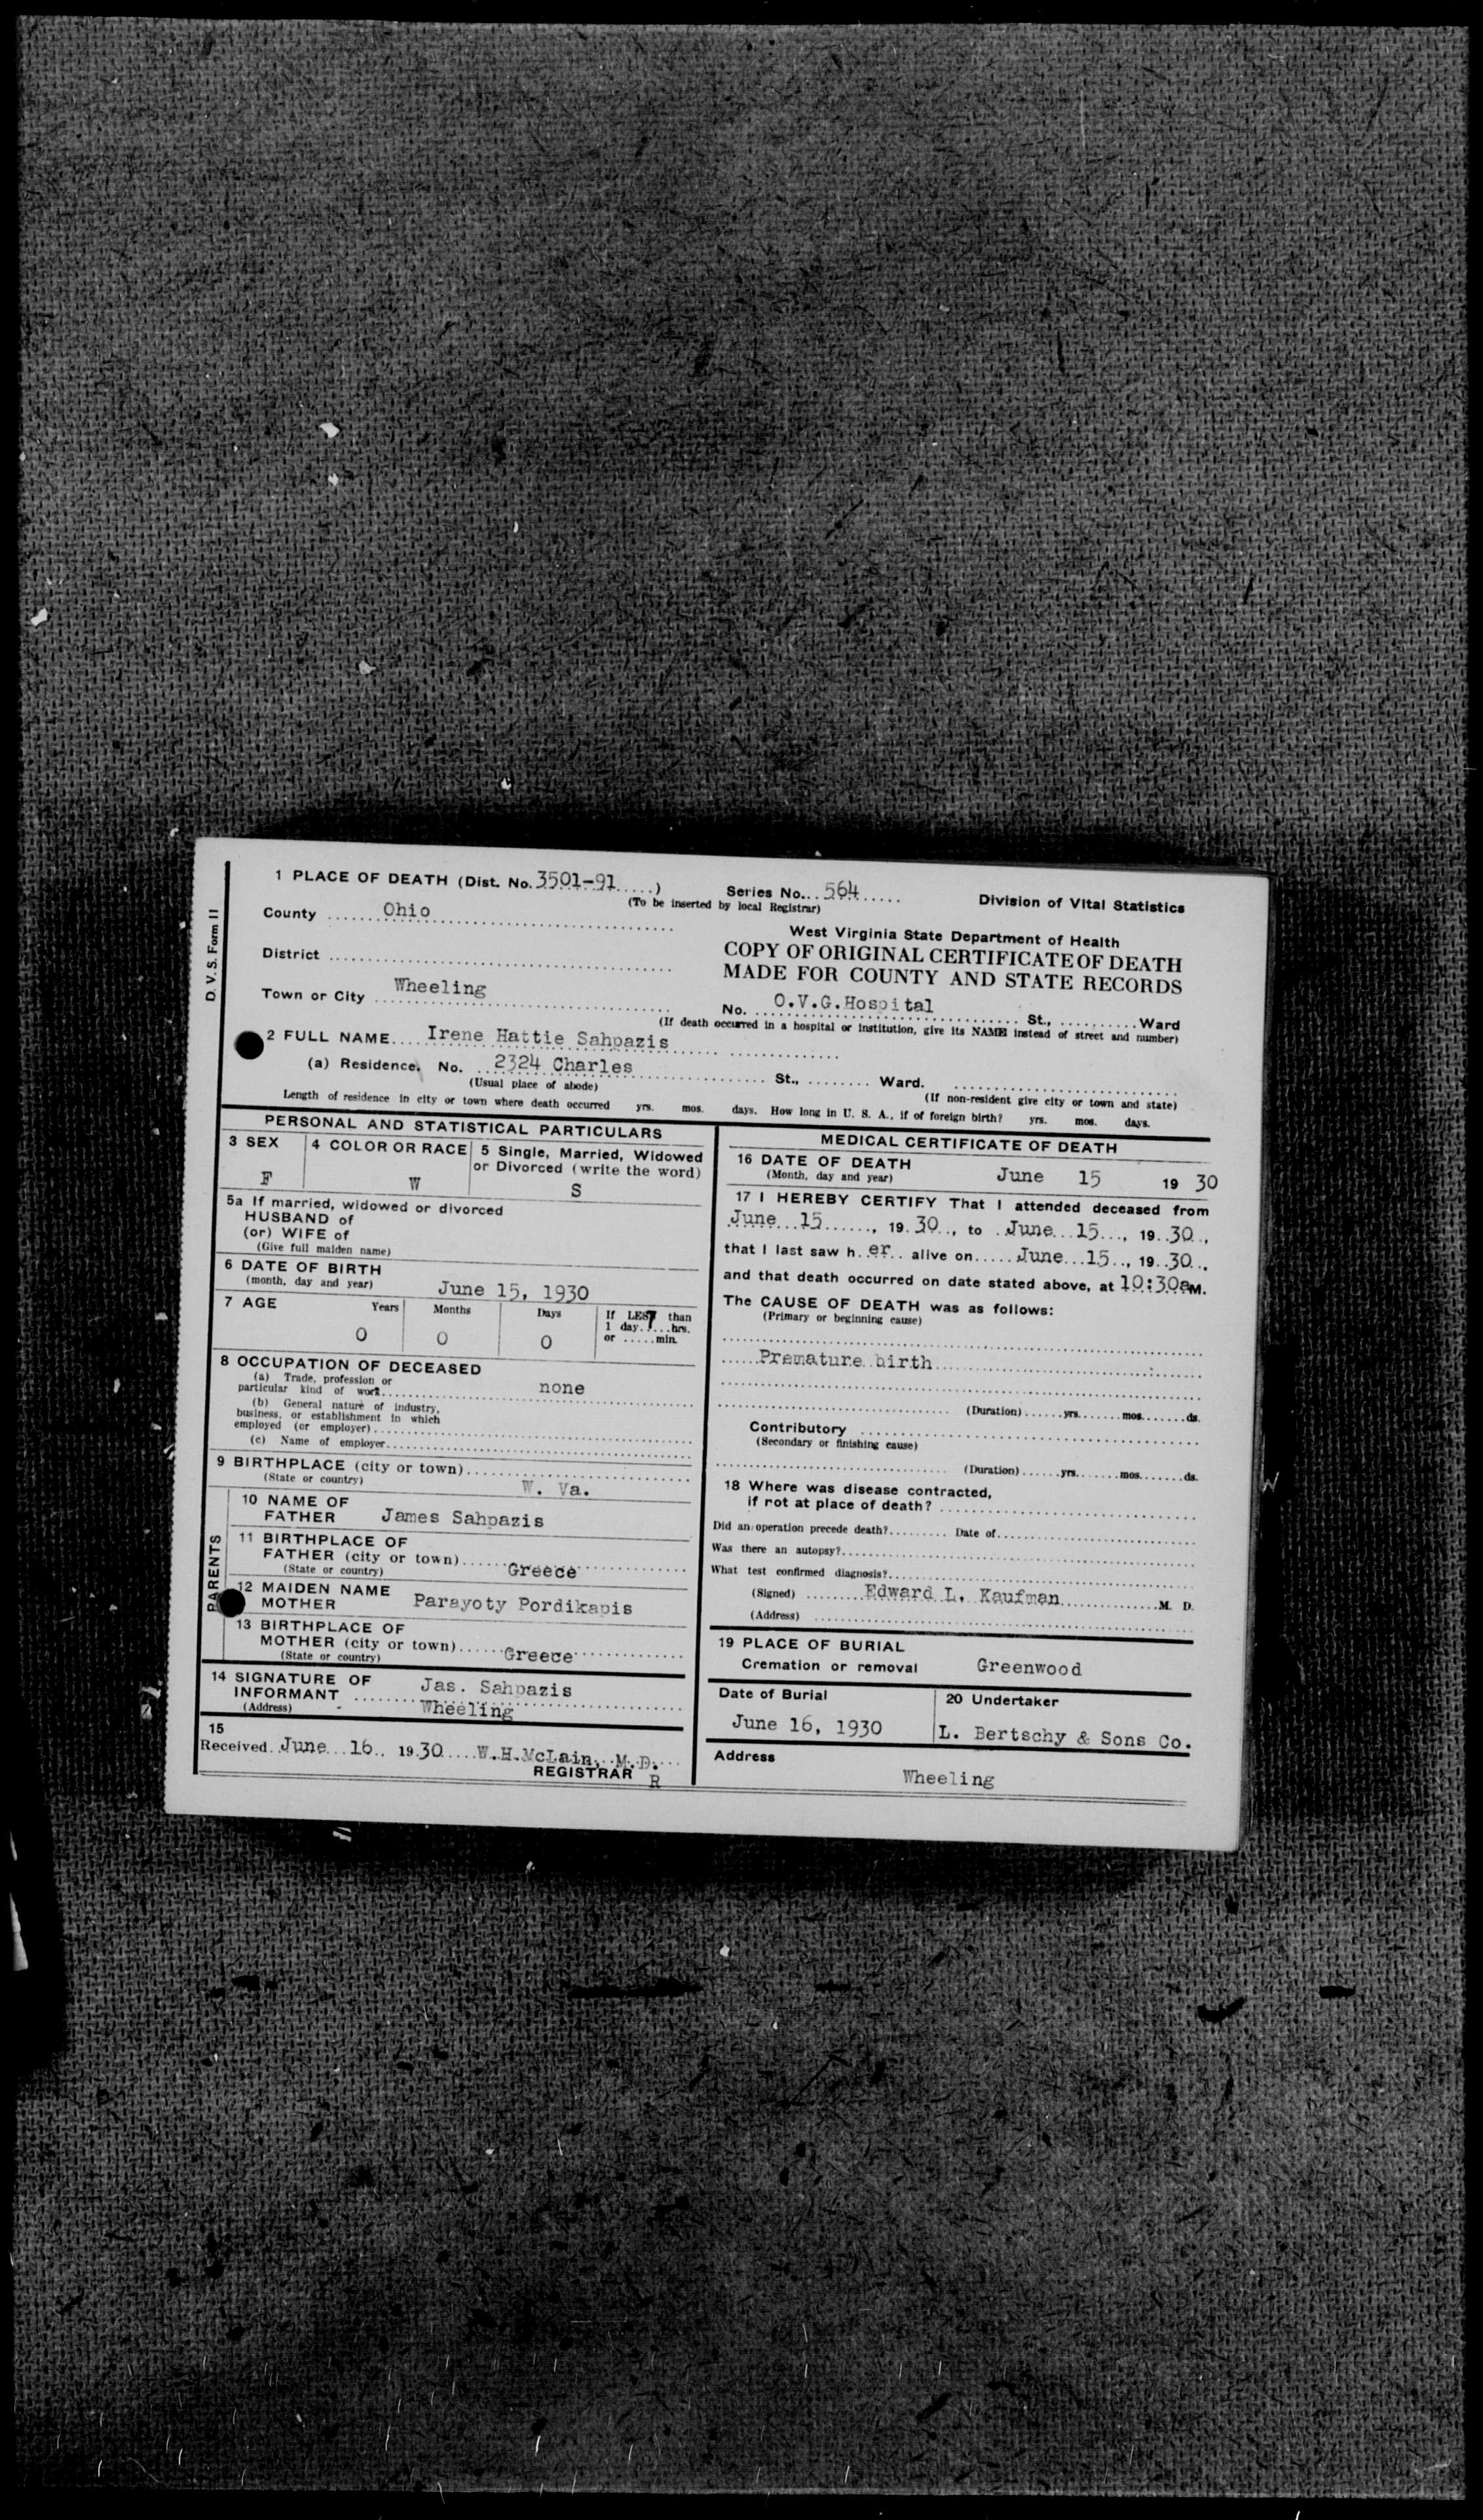 D. V. S. Form 11
1 PLACE OF DEATH (Dist. No. 3501-91.....) Series No... 564...... Division of Vital Statistics
(To be inserted by local Registrar)
County ...... Ohio
West Virginia State Department of Health
District
COPY OF ORIGINAL CERTIFICATE OF DEATH
MADE FOR COUNTY AND STATE RECORDS
Town or City ... Wheeling No. O.V.G.Hospital St., .......... Ward
(If death occurred in a hospital or institution, give its NAME instead of street and number)
2 FULL NAME.... Irene Hattie Sahpazis
(a) Residence. No. 2324 Charles St., ........ Ward.
(Usual place of abode) (If non-resident give city or town and state)
Length of residence in city or town where death occurred yrs. mos. days. How long in U. S. A., if of foreign birth? yrs. mos. days.
PERSONAL AND STATISTICAL PARTICULARS
3 SEX 4 COLOR OR RACE 5 Single, Married, Widowed
or Divorced (write the word)
F W S
5a If married, widowed or divorced
HUSBAND of
(or) WIFE of
(Give full maiden name)
6 DATE OF BIRTH
(month, day and year) June 15, 1930
7 AGE Years Months Days If LESS than
1 day 7 hrs.
or ...... min.
0 0 0
8 OCCUPATION OF DECEASED
(a) Trade, profession or
particular kind of work none
(b) General nature of industry,
business, or establishment in which
employed (or employer)
(c) Name of employer
9 BIRTHPLACE (city or town)
(State or country) W. Va.
PARENTS
10 NAME OF
FATHER James Sahpazis
11 BIRTHPLACE OF
FATHER (city or town) Greece
(State or country)
12 MAIDEN NAME
MOTHER Parayoty Pordikapis
13 BIRTHPLACE OF
MOTHER (city or town) Greece
(State or country)
14 SIGNATURE OF
INFORMANT Jas. Sahpazis
(Address) Wheeling
15
Received June 16, 1930 W.H.McLain, M.D.
REGISTRAR R
MEDICAL CERTIFICATE OF DEATH
16 DATE OF DEATH
(Month, day and year) June 15 19 30
17 I HEREBY CERTIFY That I attended deceased from
June 15, 19 30, to June 15, 19 30,
that I last saw h er alive on June 15, 19 30,
and that death occurred on date stated above, at 10:30aM.
The CAUSE OF DEATH was as follows:
(Primary or beginning cause)
Premature birth
(Duration) yrs. mos. ds.
Contributory
(Secondary or finishing cause)
(Duration) yrs. mos. ds.
18 Where was disease contracted,
if not at place of death?
Did an operation precede death? Date of
Was there an autopsy?
What test confirmed diagnosis?
(Signed) Edward L. Kaufman M. D.
(Address)
19 PLACE OF BURIAL
Cremation or removal Greenwood
Date of Burial 20 Undertaker
June 16, 1930 L. Bertschy & Sons Co.
Address
Wheeling